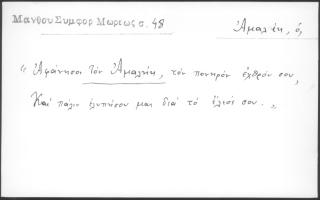 Μανθου Συμφορ Μωρεως σ. 48
Ἀμαλήκ, ὁ,
„ Ἀφάνησοι τὸν Ἀμαλήκ, τὸν πονηρὸν ἐχθρόν σου,
Καὶ πάλιν ἐλυπήσου μας διὰ τὸ ἔλεός σου. „